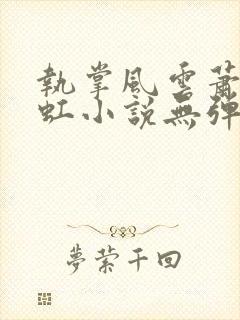 執掌風雲蕭
虹小説無彈
夢縈千回